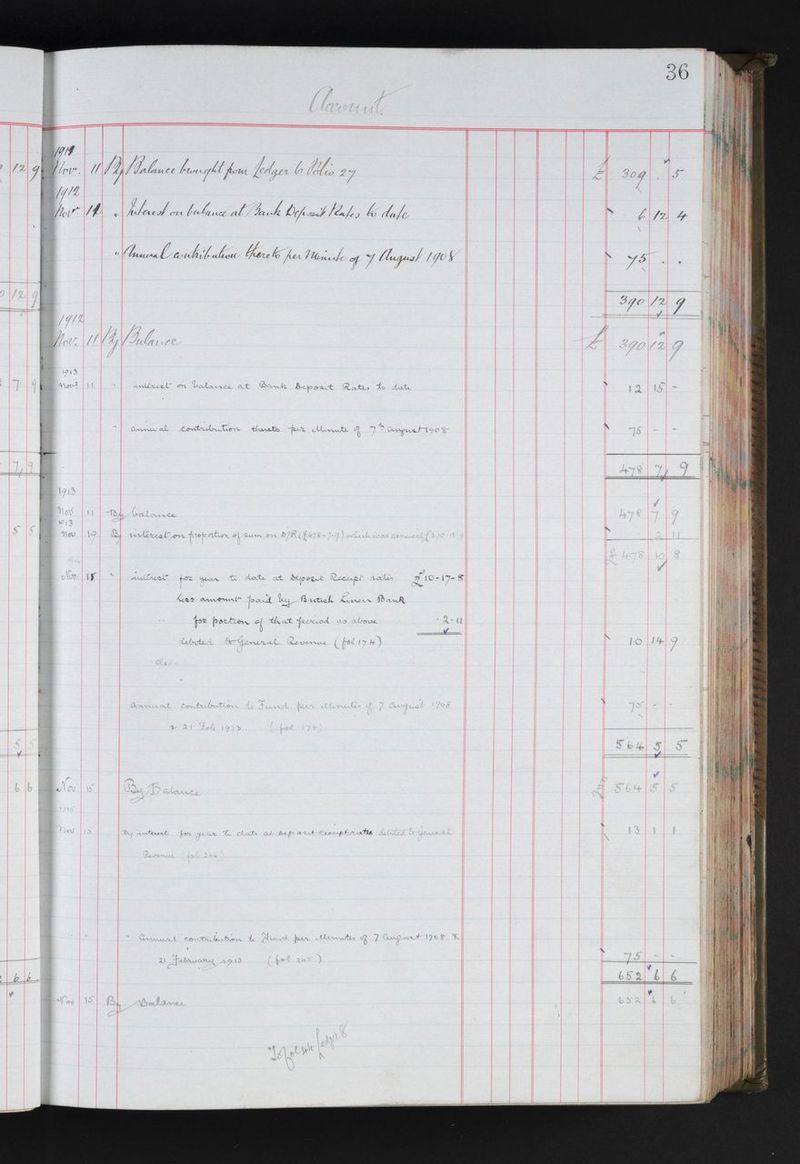 36
Account
1911
Nov. 11 By Balance brought from Ledger 6 Folio 27 £ 309 . 5
1912
Nov 11 " Interest on balance at Bank Deposit Rates to date 6 12 4
" Annual contribution thereto per Minute of 7 August 1908 75 . .
390 12 9
1912
Nov. 11 By Balance £ 390 12 9
1913
Nov 11 " interest on balance at Bank Deposit Rates to date 12 15 -
" annual contribution thereto per Minute of 7th August 1908 75 - -
478 7 9
1913
Nov 11 By balance 478 7 9
1913
Nov 19 By interest on proportion of sum on D/R (£478-7-9) which was 2 11
£ 478 10 8
Nov 15 " interest for year to date at Deposit Receipt rates £10-17-8
Less amount paid by British Linen Bank
for portion of that period as above - 2-11
debited to General Revenue (fol 174) 10 14 9
annual contribution to Fund per Minutes of 7 August 1908 75 - -
& 21 Feb 1913 (fol 174)
564 5 5
Nov 15 By Balance 564 5 5
1915
Nov 15 By interest for year to date at deposit receipt rates debited to General 13 1 1
Revenue (fol 244)
" Annual contribution to Fund per Minutes of 7 August 1908 &
21 February 1913 (fol 245) 75 - -
652 6 6
Nov 15 By Balance 652 6 6
To fol Ledger 8
12 9
0 12 9
7 9
7 9
5 5
5 5
6 6
6 6